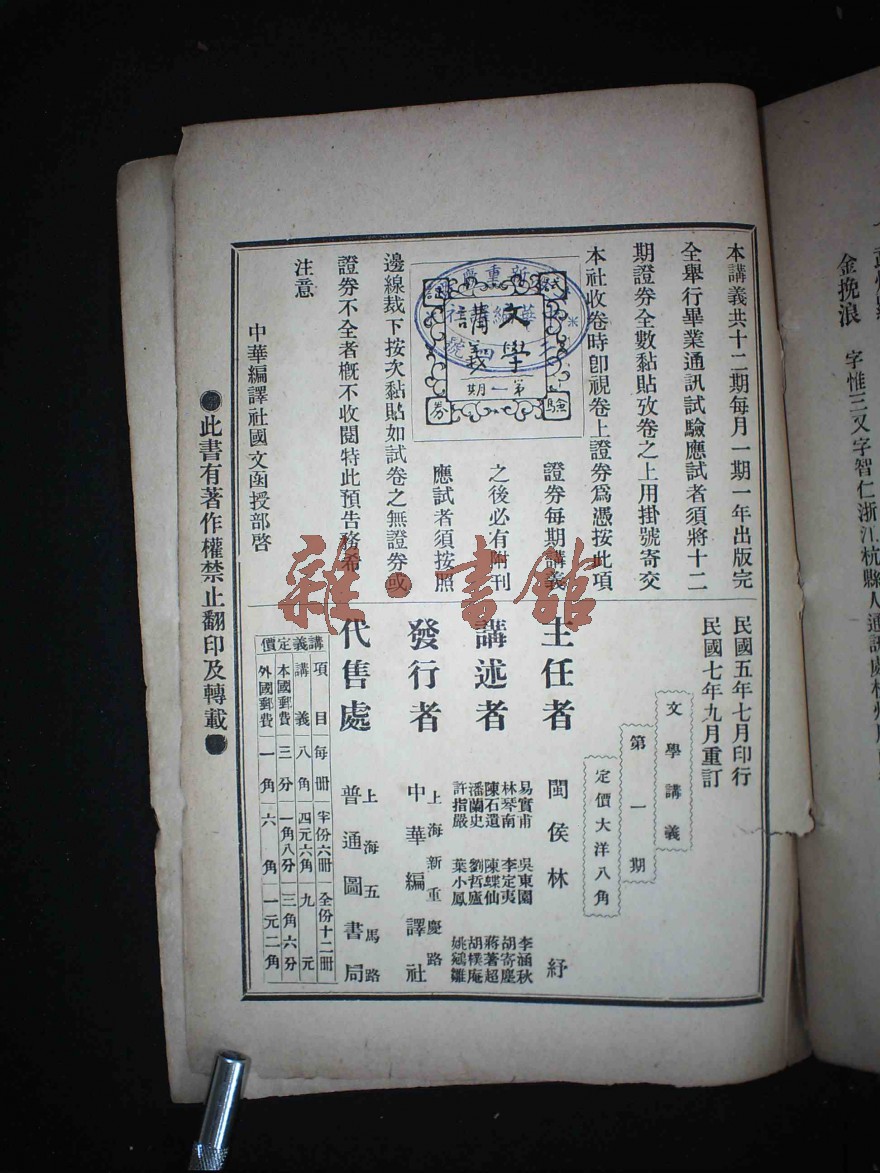 本講義共十二期每月一期一年出版完
全舉行畢業通訊試驗應試者須將十二
期證券全數黏貼攷卷之上用掛號寄交
本社收卷時卽視卷上證券爲憑按此項
證券每期講義
之後必有附刊
應試者須按照
邊線裁下按次黏貼如試卷之無證券或
證券不全者槪不收閱特此預告務希
注意
中華編譯社國文函授部啓
試驗
證券
文學
講義
第一期
民國五年七月印行
民國七年九月重訂
文學講義
第一期
定價大洋八角
主任者
閩侯林紓
講述者
易實甫 吳東園 李涵秋
林琴南 李定夷 胡寄塵
陳石遺 陳蝶仙 蔣著超
潘蘭史 劉哲廬 胡樸庵
許指嚴 葉小鳳 姚鵷雛
發行者
上海新重慶路
中華編譯社
代售處
上海五馬路
普通圖書局
講義定價
項目 每冊 半份六冊 全份十二冊
講義 八角 四元六角 九元
本國郵費 三分 一角八分 三角六分
外國郵費 一角 六角 一元二角
●此書有著作權禁止翻印及轉載●
金挽浪 字惟三又字智仁浙江杭縣人通訊處杭州
雜·書館